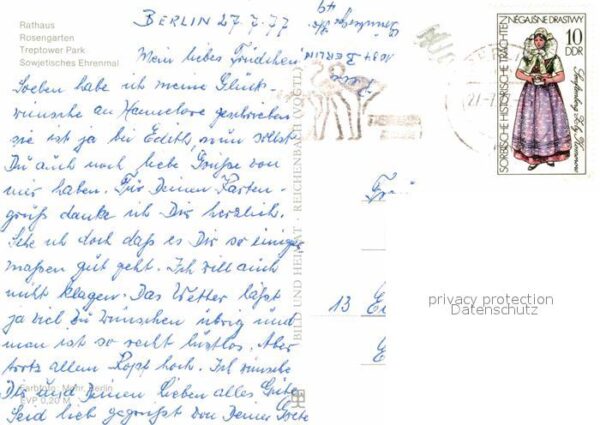 Rathaus
Rosengarten
Treptower Park
Sowjetisches Ehrenmal
BERLIN 27.7.77
Mein liebes Trudchen
Soeben habe ich meine Glück-
wünsche an Hannelore geschrieben
sie ist ja bei Edith, nun sollst
Du auch noch liebe Grüße von
mir haben. Für Deinen Karten-
gruß danke ich Dir herzlich.
Sehe ich doch daß es Dir so einiger
maßen gut geht. Ich will auch
nicht klagen. Das Wetter läßt
ja viel zu wünschen übrig und
man ist so recht lustlos. Aber
trotz allem Kopf hoch. Ich wünsche
Dir und Deinen Lieben alles Gute
Seid lieb gegrüßt von Deiner
Farbfoto: Mohr, Berlin
EVP 0,20 M
BILD UND HEIMAT · REICHENBACH (VOGTL)
1034 BERLIN
49
27.7
Z NĚGAJŠNE DRASTWY
10
DDR
SORBISCHE HISTORISCHE TRACHTEN
13
privacy protection
Datenschutz